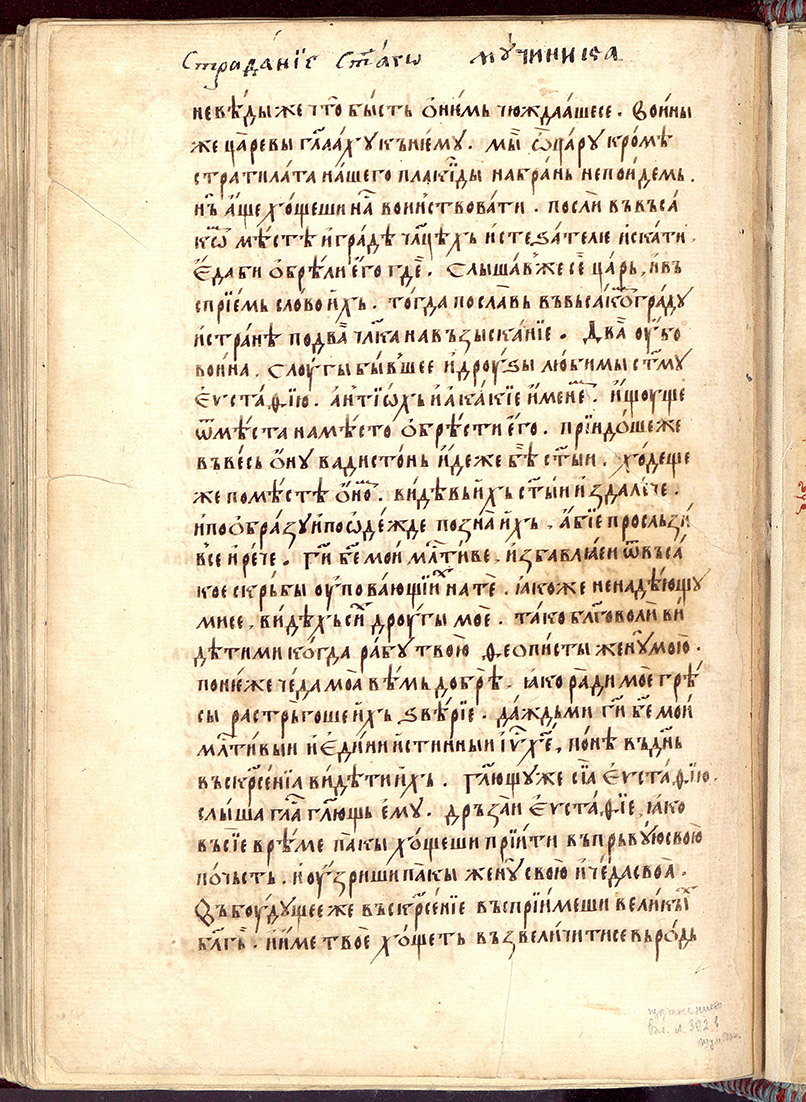 Страдáнїе ст҃аго мꙋ́чиника
не вѣ́ды же что̀ бы́сть ѻ҆ не́мь чюждаа́шесе. Во́ины
же цр҃евы гл҃аахꙋ къ не́мꙋ. мы̀ ѿ цр҃ꙋ кро́мѣ
стратила́та на́шего плаки́ды на бра́нь не по́идемь.
нъ а҆́ще хо́щеши на́м во́иньствовати. послѝ въ въса́
кѡ мѣ́стѣ и҆ гра́дѣ чл҃цѣхъ и҆стезателю и҆ска́ти.
Е҆да би ѻ҆брѣ́ли е҆го гдѐ. Слы́шав же се̏ ца́рь, и҆ въ
спрїе́мь сло́во и҆́хь. тогда посла́вь въ въса́ко гра́дꙋ
и҆ стра́нѣ по два̀ чл҃ка на възыска́нїе. Два̀ ѹ҆́бо
во́ина. слѹ́гы бы́вшее и҆ дрѹ́ѕы любимы ст҃мꙋ
Еѵста́ѳїю. а҆нтїѡхъ и҆ а҆ка́кїе и҆́менем. И҆́щꙋще
ѿ мѣ́ста на мѣ́сто ѻ҆брѣ́сти е҆го. прїидо́ше же
въ ве́сь ѻ҆́нꙋ вадисто́нь и҆́деже бѣ̀ ст҃ы́и. хо́деще
же по мѣ́стѣ ѻ҆́но. ви́дѣвь и҆́хъ ст҃ы́и и҆здале́че.
и҆ по ѻ҆бра́зꙋ и҆ по ѡ҆де́жде позна̀ и҆́хь. а҆́бїе прослъзи́
все и҆ ре́че. Гѝ бе҃ мо́и мл҃тиве. и҆збавлꙗ́еи ѿ въса́
кое скръ́бы ѹ҆пова́ющїих на тѐ. ꙗ҆коже не наде́ющꙋ
ми се, ви́дѣхъ сих дрѹ́гы моѐ. та́ко бл҃говолѝ ви́
дѣти ми ко́гда ра́бꙋ твою̀ Ѳеопи́сты женꙋ̀ мою̀.
поне́же че́да моа̀ вѣ́мь до́брѣ. ꙗ҆ко ра́ди моѐ грѣ́
сы растръ́гоше и҆́хъ ѕвѣ́рїе. да́ждь ми гѝ бе҃ мо́и
мл҃тивыи и҆ Е҆ди́ни и҆́стинныи і҆ѵ хе҃, по́нѣ въ дн҃ь
въскрсе́нїа ви́дѣти и҆́хъ. Гл҃ющꙋ же сїа̀ Еѵста́ѳїю.
слы́ша гла̀ гл҃ющь е҆мꙋ. дръза́и Еѵста́ѳїе, ꙗ҆ко
въ сїѐ врѣ́ме па́кы хо́щеши прїити въ пръвꙋю свою̀
по́чьсть. и҆ ѹ҆́зриши па́кы женꙋ̀ свою̀ и҆ че́да своа̀.
Въ бѹ́дꙋщее же въскрсе́нїе въспрїи́меши вели́кых
бл҃гь. и҆ и҆́ме твоѐ хо́щеть възвели́чити се въ ро́дь